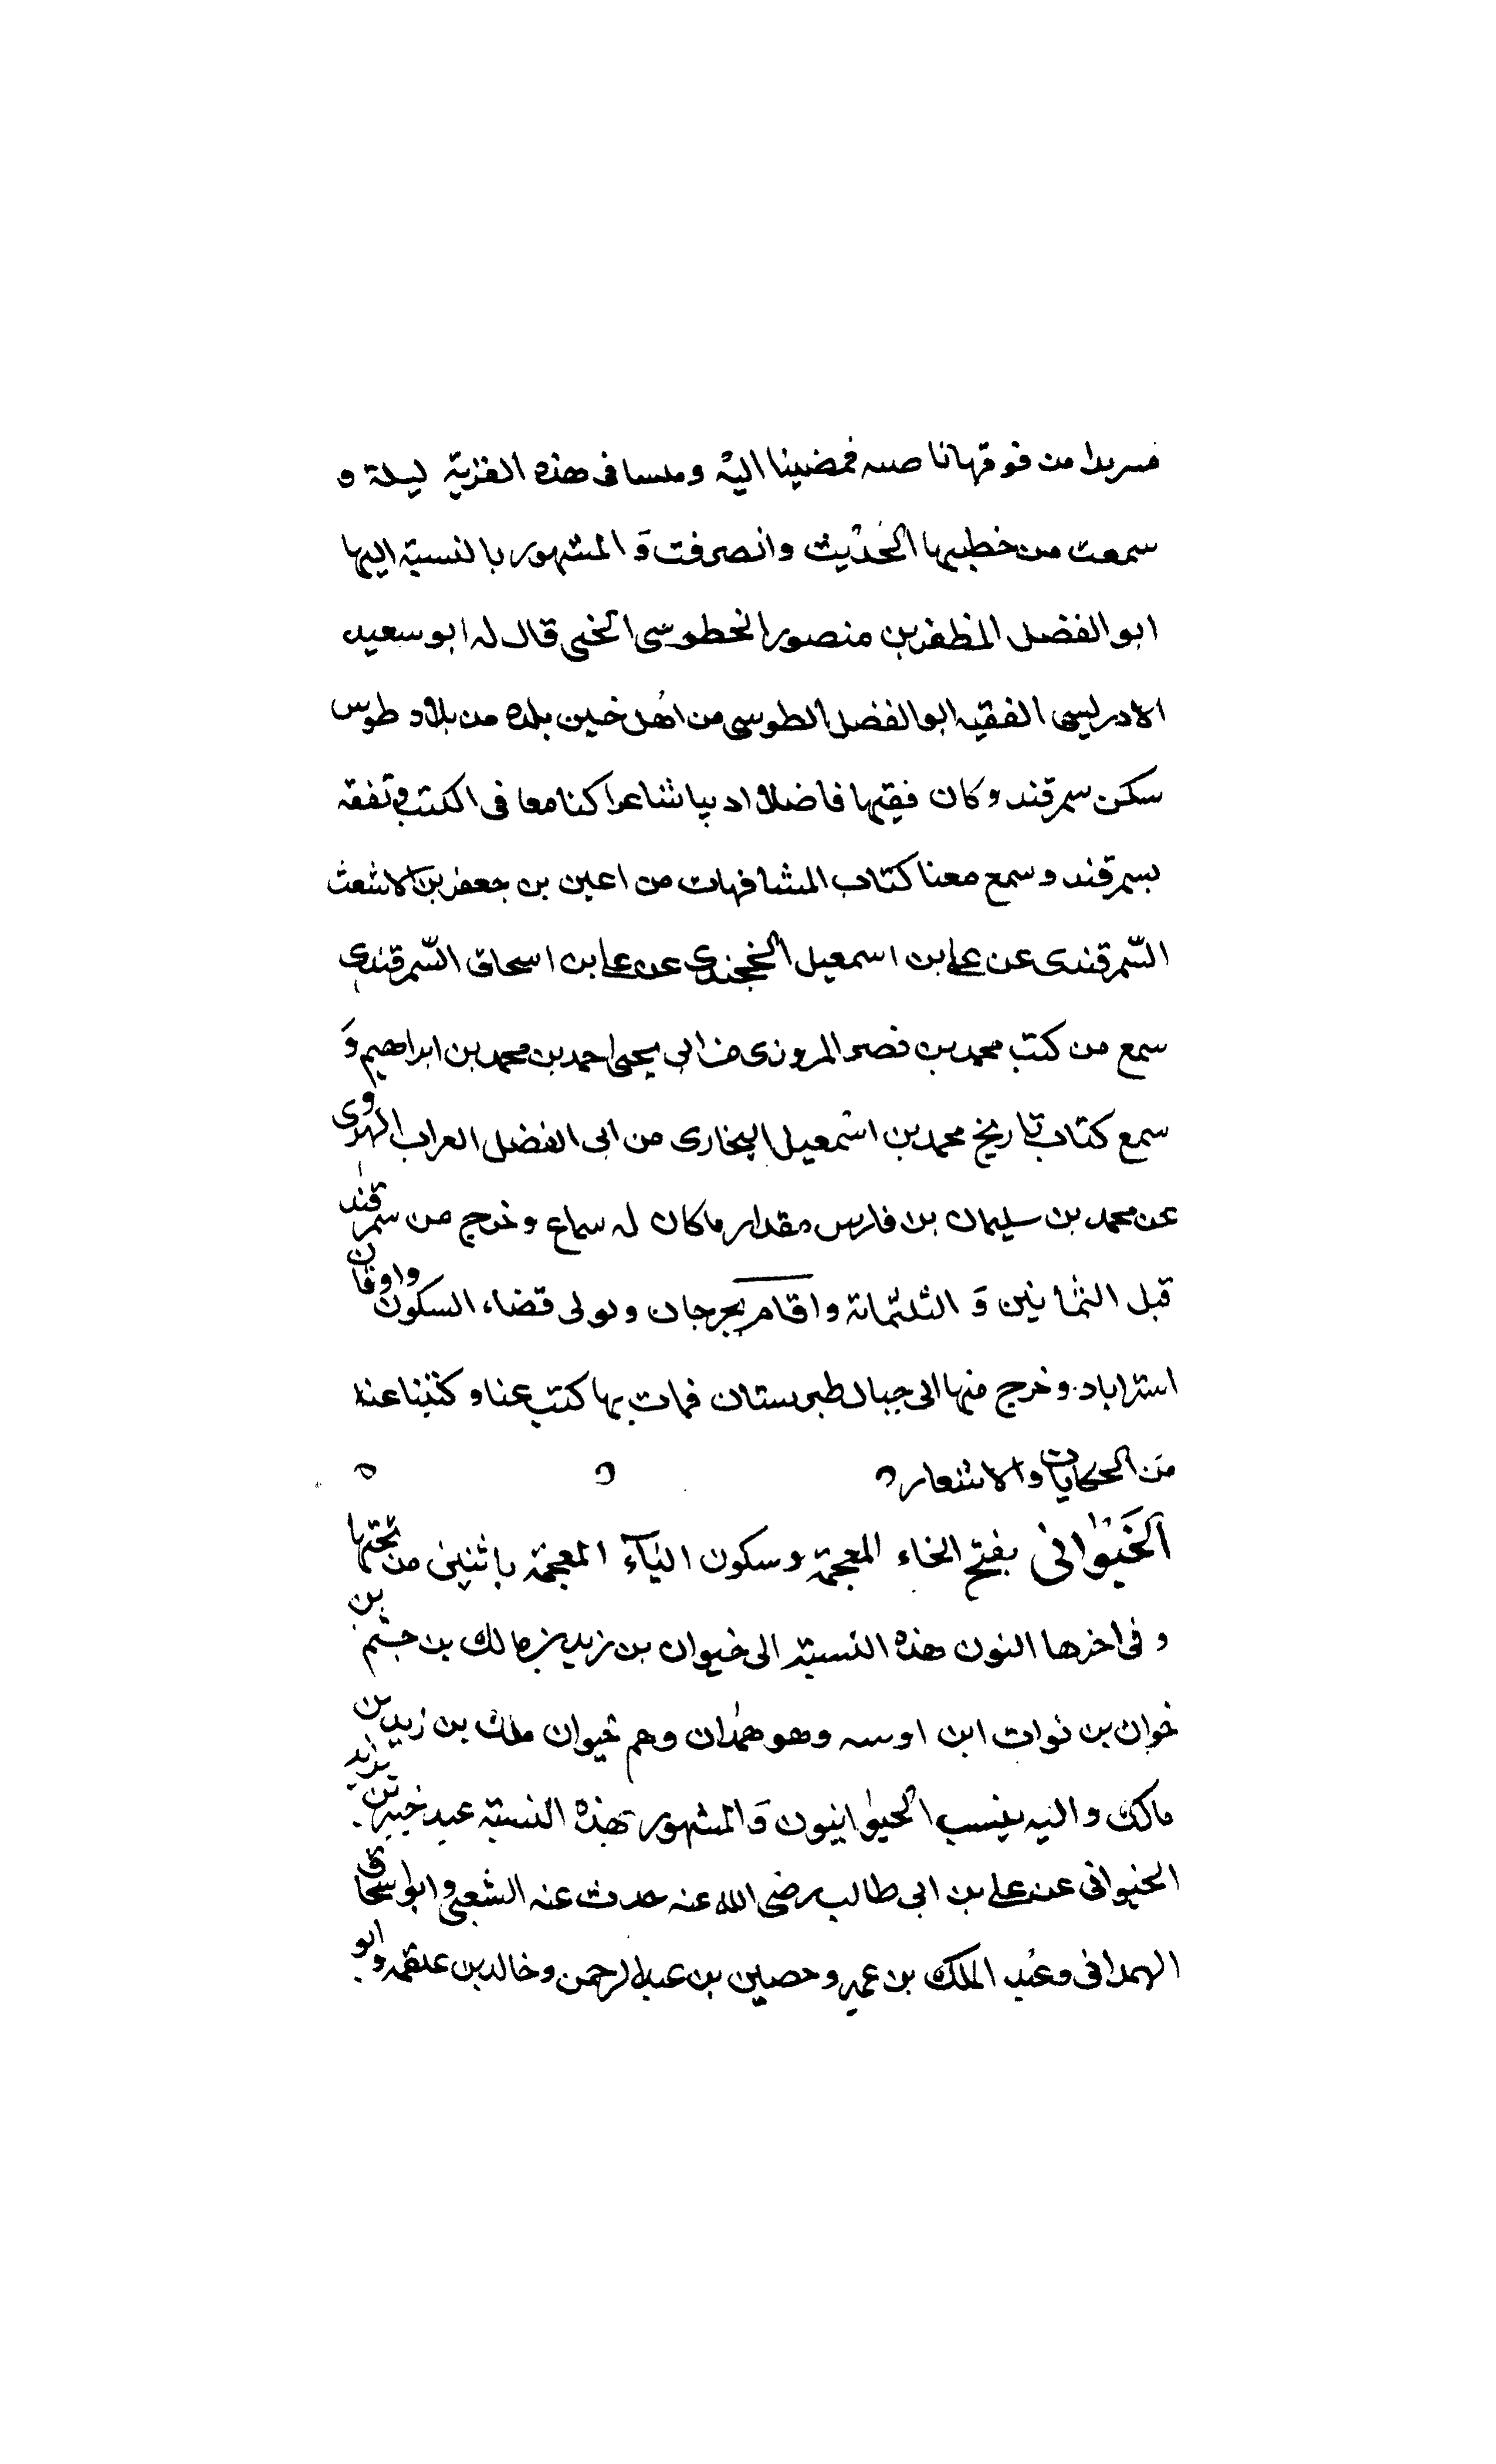 من فوقها نا فمضينا اليه و فى هذه القرية ليلة و
سمعت من خطيبها الحديث وانصرفت وَ المشهور بالنسبة اليها
ابو الفضل المظفر بن منصور الخطوسى الخى قال له ابو سعيد
الادريسى الفقيه ابو الفضل الطوسى من اهل خين بلده من بلاد طوس
سكن سمرقند وكان فقيها فاضلا اديبا شاعرا كنا معا فى الكتب وتفقه
بسمرقند وسمع معنا كتاب المشافهات من اعين بن جعفر بن الاشعث
السّمرقندى عن على بن اسمعيل الخجندى عن على بن اسحاق السّمرقندى
سمع من كتب محمد بن نصر المروزى من ابى يحيى احمد بن محمد بن ابراهيم وَ
سمع كتاب تاريخ محمد بن اسمعيل البخارى من ابى الفضل العراب الهروى
عن محمد بن سليمان بن فارس مقدار ما كان له سماع وخرج من سمرقند
قبل الثمانين وَ الثلثمائة واقام بجرجان وتولى قضاء السكون واوقاف
استراباد وخرج منها الى جبال طبرستان فمات بها كتب عنا وكتبنا عنه
من الحكايات والاشعار ه ه ه
الخَيْوَانى بفتح الخاء المعجمة وسكون اليَآء المعجمة باثنين من تحتها
وفى اخرها النون هذه النسبة الى خيوان بن زيد بن مالك بن جشم بن
خوان بن نوات ابن اوسه وهو همدان وهم خيوان ملك بن زيد بن
مالك واليه ينسب الخيوانيون وَالمشهور بهذه النسبة عبد خير بن يزيد
الخيوانى عن على بن ابى طالب رضى الله عنه حدث عنه الشعبى وابو اسحاق
الهمدانى وعبد الملك بن عمير وحصين بن عبد الرحمن وخالد بن علقمه وابو